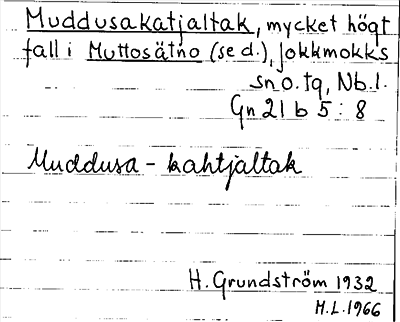 Muddusakatjaltak, mycket högt
fall i Muttosätno (se d.), Jokkmokks
sn o. tg, Nb. l.
Gn 21 b 5 : 8
Muddusa - kahtjaltak
H. Grundström 1932
H.L. 1966